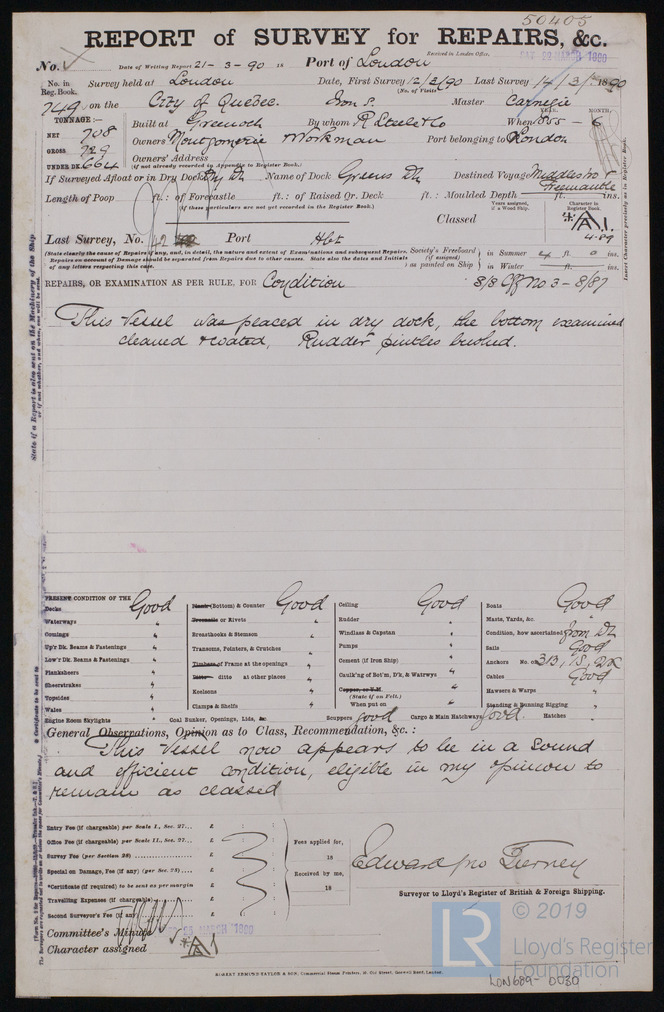 50405
REPORT of SURVEY for REPAIRS, &c.
Received in London Office,
No. Date of Writing Report 21-3-90 18 Port of London
No. in Reg. Book. Survey held at London Date, First Survey 12/3/90 Last Survey 14/3/1890
(No. of Visits)
749 on the City of Quebec. Iron S. Master Carnegie
TONNAGE:— YEAR. MONTH.
NET 708 Built at Greenock By whom R Steele & Co When 1855 - 6
GROSS 729 Owners Montgomerie & Workman Port belonging to London
UNDER DK. 664 Owners' Address
(if not already recorded in Appendix to Register Book.)
If Surveyed Afloat or in Dry Dock Dry Dk Name of Dock Greens Dk Destined Voyage Middlesbro & Freemantle
Length of Poop ft.: of Forecastle ft.: of Raised Qr. Deck ft.: Moulded Depth ft. ins.
(If these particulars are not yet recorded in the Register Book.)
Years assigned, if a Wood Ship.
Character in Register Book.
Classed A1
4.89
Last Survey, No. 42 Port Hbt
(State clearly the cause of Repairs if any, and, in detail, the nature and extent of Examinations and subsequent Repairs.
Repairs on account of Damage should be separated from Repairs due to other causes. State also the dates and Initials
of any letters respecting this case.
Society's Freeboard (if assigned) as painted on Ship
in Summer ft. ins.
in Winter ft. ins.
REPAIRS, OR EXAMINATION AS PER RULE, FOR Condition
S/S Off No 3 - 8/87
This Vessel was placed in dry dock, the bottom examined
cleaned & coated, Rudder pintles bushed.
PRESENT CONDITION OF THE
Decks Good
Waterways "
Comings "
Up'r Dk. Beams & Fastenings "
Low'r Dk. Beams & Fastenings "
Planksheers "
Sheerstrakes "
Topsides "
Wales "
Engine Room Skylights "
Plank (Bottom) & Counter Good
Treenails or Rivets "
Breasthooks & Stemson "
Transoms, Pointers, & Crutches "
Timbers of Frame at the openings "
Ditto ditto at other places "
Keelsons "
Clamps & Shelfs "
Coal Bunker, Openings, Lids, &c.
Ceiling Good
Rudder "
Windlass & Capstan "
Pumps "
Cement (if Iron Ship) "
Caulk'ng of Bot'm, D'k, & Waterwys "
Copper, or Y.M. "
(State if on Felt.)
When put on "
Scuppers good Cargo & Main Hatchways good. Hatches "
Boats Good
Masts, Yards, &c. "
Condition, how ascertained from Dk
Sails Good
Anchors No. of 3B, 1S, 2K
Cables Good
Hawsers & Warps "
Standing & Running Rigging "
General Observations, Opinion as to Class, Recommendation, &c.:
This Vessel now appears to be in a sound
and efficient condition, eligible in my opinion to
remain as classed
Entry Fee (if chargeable) per Scale I., Sec. 27... £ : :
Office Fee (if chargeable) per Scale II., Sec. 27... £ : :
Survey Fee (per Section 28) £ : :
Special on Damage, Fee (if any) (per Sec. 28) £ : :
*Certificate (if required) to be sent as per margin
Travelling Expenses (if chargeable) £ : :
Second Surveyor's Fee (if any) £ : :
Fees applied for,
18
Received by me,
18
Edward Jno Tierney
Surveyor to Lloyd's Register of British & Foreign Shipping.
Committee's Minute 25 MARCH 1890
Character assigned A1
ROBERT EDMUND TAYLOR & SON, Commercial Steam Printers, 19, Old Street, Goswell Road, London.
LR
© 2019
Lloyd's Register
Foundation
LON689-0030